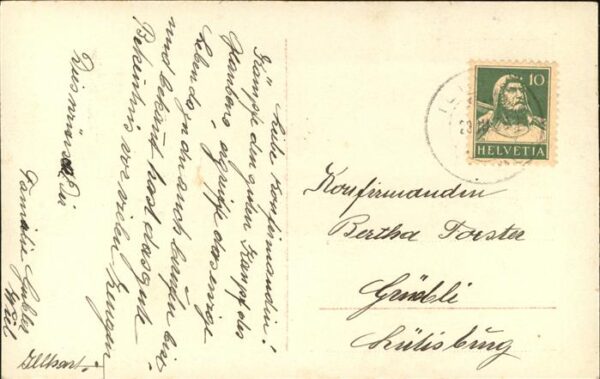 Liebe Konfirmandin!
Kämpfe den guten Kampf des
Glaubens, ergreife das ewige
Leben, dazu du auch berufen bist
und bekannt hast das gute
Bekenntnis vor vielen Zeugen
Dies wünscht Dir
Familie
10
HELVETIA
Konfirmandin
Bertha Forster
Grübli
Lütisburg